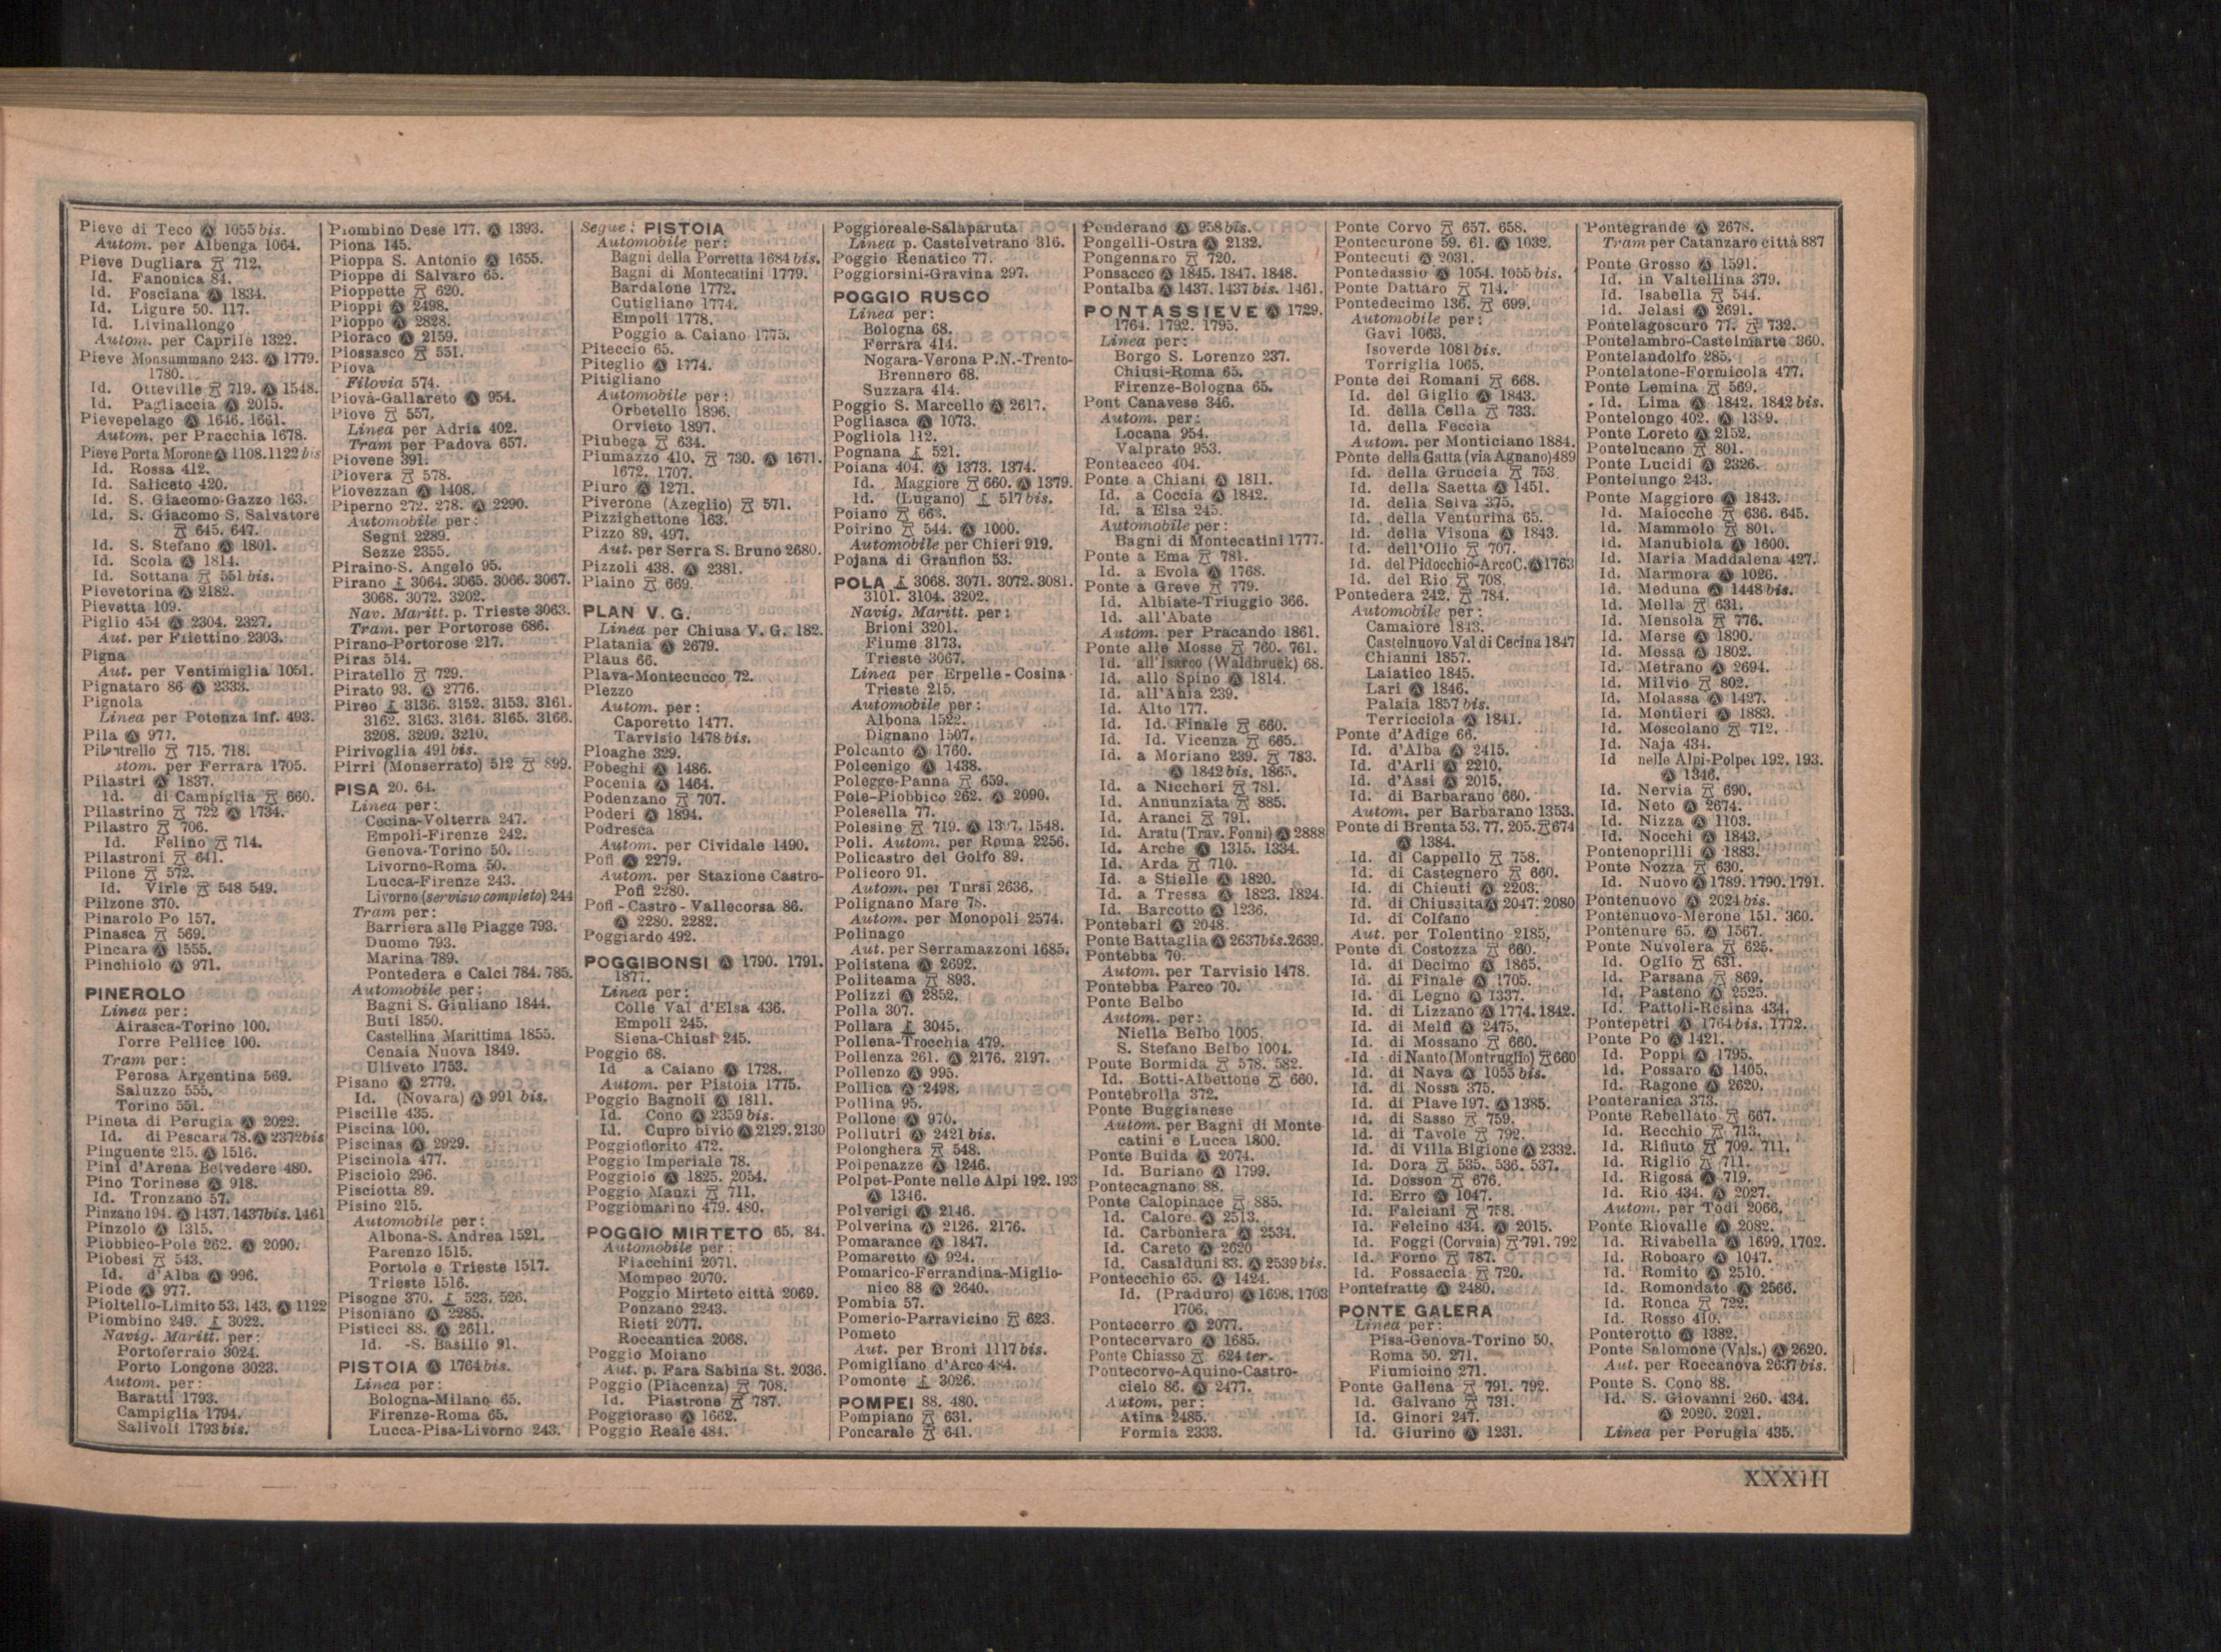 Pieve di Teco Ⓐ 1055 bis.
Autom. per Albenga 1064.
Pieve Dugliara 712.
Id. Fanonica 84.
Id. Fosciana Ⓐ 1834.
Id. Ligure 50. 117.
Id. Livinallongo
Autom. per Caprile 1322.
Pieve Monsummano 243. Ⓐ 1779.
1780.
Id. Otteville 719. Ⓐ 1548.
Id. Pagliaccia Ⓐ 2015.
Pievepelago Ⓐ 1646. 1661.
Autom. per Pracchia 1678.
Pieve Porta Morone Ⓐ 1108. 1122 bis
Id. Rossa 412.
Id. Saliceto 420.
Id. S. Giacomo-Gazzo 163.
Id. S. Giacomo S. Salvatore
645. 647.
Id. S. Stefano Ⓐ 1801.
Id. Scola Ⓐ 1814.
Id. Sottana 551 bis.
Pievetorina Ⓐ 2182.
Pievetta 109.
Piglio 454 Ⓐ 2304. 2327.
Aut. per Filettino 2303.
Pigna
Aut. per Ventimiglia 1051.
Pignataro 86 Ⓐ 2333.
Pignola
Linea per Potenza Inf. 493.
Pila Ⓐ 977.
Pilastrello 715. 718.
Autom. per Ferrara 1705.
Pilastri Ⓐ 1837.
Id. di Campiglia 660.
Pilastrino 722 Ⓐ 1734.
Pilastro 706.
Id. Felino 714.
Pilastroni 641.
Pilone 572.
Id. Virle 548 549.
Pilzone 370.
Pinarolo Po 157.
Pinasca 569.
Pincara Ⓐ 1555.
Pinchiolo Ⓐ 971.
PINEROLO
Linea per:
Airasca-Torino 100.
Torre Pellice 100.
Tram per:
Perosa Argentina 569.
Saluzzo 555.
Torino 551.
Pineta di Perugia Ⓐ 2022.
Id. di Pescara 78. Ⓐ 2372 bis
Pinguente 215. Ⓐ 1516.
Pini d'Arena Belvedere 480.
Pino Torinese Ⓐ 918.
Id. Tronzano 57.
Pinzano 194. Ⓐ 1437. 1437 bis. 1461
Pinzolo Ⓐ 1315.
Piobbico-Pole 262. Ⓐ 2090.
Piobesi 543.
Id. d'Alba Ⓐ 996.
Piode Ⓐ 977.
Pioltello-Limito 53. 143. Ⓐ 1122
Piombino 249. 3022.
Navig. Maritt. per:
Portoferraio 3024.
Porto Longone 3023.
Autom. per:
Baratti 1793.
Campiglia 1794.
Salivoli 1793 bis.
Piombino Dese 177. Ⓐ 1393.
Piona 145.
Pioppa S. Antonio Ⓐ 1655.
Pioppe di Salvaro 65.
Pioppette 620.
Pioppi Ⓐ 2498.
Pioppo Ⓐ 2828.
Pioraco Ⓐ 2159.
Piossasco 551.
Piova
Filovia 574.
Piovà-Gallareto Ⓐ 954.
Piove 557.
Linea per Adria 402.
Tram per Padova 657.
Piovene 391.
Piovera 578.
Piovezzan Ⓐ 1408.
Piperno 272. 278. Ⓐ 2290.
Automobile per:
Segni 2289.
Sezze 2355.
Piraino-S. Angelo 95.
Pirano 3064. 3065. 3066. 3067.
3068. 3072. 3202.
Nav. Maritt. p. Trieste 3063.
Tram. per Portorose 686.
Pirano-Portorose 217.
Piras 514.
Piratello 729.
Pirato 93. Ⓐ 2776.
Pireo 3136. 3152. 3153. 3161.
3162. 3163. 3164. 3165. 3166.
3208. 3209. 3210.
Pirivoglia 491 bis.
Pirri (Monserrato) 512 899.
PISA 20. 64.
Linea per:
Cecina-Volterra 247.
Empoli-Firenze 242.
Genova-Torino 50.
Livorno-Roma 50.
Lucca-Firenze 243.
Livorno (servizio completo) 244
Tram per:
Barriera alle Piagge 793.
Duomo 793.
Marina 789.
Pontedera e Calci 784. 785.
Automobile per:
Bagni S. Giuliano 1844.
Buti 1850.
Castellina Marittima 1855.
Cenaia Nuova 1849.
Uliveto 1753.
Pisano Ⓐ 2779.
Id. (Novara) Ⓐ 991 bis.
Piscille 435.
Piscina 100.
Piscinas Ⓐ 2929.
Piscinola 477.
Pisciolo 296.
Pisciotta 89.
Pisino 215.
Automobile per:
Albona-S. Andrea 1521.
Parenzo 1515.
Portole e Trieste 1517.
Trieste 1516.
Pisogne 370. 523. 526.
Pisoniano Ⓐ 2285.
Pisticci 88. Ⓐ 2611.
Id. -S. Basilio 91.
PISTOIA Ⓐ 1764 bis.
Linea per:
Bologna-Milano 65.
Firenze-Roma 65.
Lucca-Pisa-Livorno 243.
Segue: PISTOIA
Automobile per:
Bagni della Porretta 1684 bis.
Bagni di Montecatini 1779.
Bardalone 1772.
Cutigliano 1774.
Empoli 1778.
Poggio a Caiano 1775.
Piteccio 65.
Piteglio Ⓐ 1774.
Pitigliano
Automobile per:
Orbetello 1896.
Orvieto 1897.
Piubega 634.
Piumazzo 410. 730. Ⓐ 1671.
1672. 1707.
Piuro Ⓐ 1271.
Piverone (Azeglio) 571.
Pizzighettone 163.
Pizzo 89. 497.
Aut. per Serra S. Bruno 2680.
Pizzoli 438. Ⓐ 2381.
Plaino 669.
PLAN V. G.
Linea per Chiusa V. G. 182.
Platania Ⓐ 2679.
Plaus 66.
Plava-Montecucco 72.
Plezzo
Autom. per:
Caporetto 1477.
Tarvisio 1478 bis.
Ploaghe 329.
Pobeghi Ⓐ 1486.
Pocenia Ⓐ 1464.
Podenzano 707.
Poderi Ⓐ 1894.
Podresca
Autom. per Cividale 1490.
Pofi Ⓐ 2279.
Autom. per Stazione Castro-
Pofi 2280.
Pofi - Castro - Vallecorsa 86.
Ⓐ 2280. 2282.
Poggiardo 492.
POGGIBONSI Ⓐ 1790. 1791.
1877.
Linea per:
Colle Val d'Elsa 436.
Empoli 245.
Siena-Chiusi 245.
Poggio 68.
Id a Caiano Ⓐ 1728.
Autom. per Pistoia 1775.
Poggio Bagnoli Ⓐ 1811.
Id. Cono Ⓐ 2359 bis.
Id. Cupro bivio Ⓐ 2129. 2130
Poggiofiorito 472.
Poggio Imperiale 78.
Poggiolo Ⓐ 1825. 2054.
Poggio Manzi 711.
Poggiomarino 479. 480.
POGGIO MIRTETO 65. 84.
Automobile per:
Fiacchini 2071.
Mompeo 2070.
Poggio Mirteto città 2069.
Ponzano 2243.
Rieti 2077.
Roccantica 2068.
Poggio Moiano
Aut. p. Fara Sabina St. 2036.
Poggio (Piacenza) 708.
Id. Piastrone 787.
Poggioraso Ⓐ 1662.
Poggio Reale 484.
Poggioreale-Salaparuta
Linea p. Castelvetrano 316.
Poggio Renatico 77.
Poggiorsini-Gravina 297.
POGGIO RUSCO
Linea per:
Bologna 68.
Ferrara 414.
Nogara-Verona P.N.-Trento-
Brennero 68.
Suzzara 414.
Poggio S. Marcello Ⓐ 2617.
Pogliasca Ⓐ 1073.
Pogliola 112.
Pognana 521.
Poiana 404. Ⓐ 1373. 1374.
Id. Maggiore 660. Ⓐ 1379.
Id. (Lugano) 517 bis.
Poiano 663.
Poirino 544. Ⓐ 1000.
Automobile per Chieri 919.
Pojana di Granfion 53.
POLA 3068. 3071. 3072. 3081.
3101. 3104. 3202.
Navig. Maritt. per:
Brioni 3201.
Fiume 3173.
Trieste 3067.
Linea per Erpelle - Cosina
Trieste 215.
Automobile per:
Albona 1522.
Dignano 1507.
Polcanto Ⓐ 1760.
Polcenigo Ⓐ 1438.
Polegge-Panna 659.
Pole-Piobbico 262. Ⓐ 2090.
Polesella 77.
Polesine 719. Ⓐ 1397. 1548.
Poli. Autom. per Roma 2256.
Policastro del Golfo 89.
Policoro 91.
Autom. per Tursi 2636.
Polignano Mare 78.
Autom. per Monopoli 2574.
Polinago
Aut. per Serramazzoni 1685.
Polistena Ⓐ 2692.
Politeama 893.
Polizzi Ⓐ 2852.
Polla 307.
Pollara 3045.
Pollena-Trocchia 479.
Pollenza 261. Ⓐ 2176. 2197.
Pollenzo Ⓐ 995.
Pollica Ⓐ 2498.
Pollina 95.
Pollone Ⓐ 970.
Pollutri Ⓐ 2421 bis.
Polonghera 548.
Polpenazze Ⓐ 1246.
Polpet-Ponte nelle Alpi 192. 193
Ⓐ 1346.
Polverigi Ⓐ 2146.
Polverina Ⓐ 2126. 2176.
Pomarance Ⓐ 1847.
Pomaretto Ⓐ 924.
Pomarico-Ferrandina-Miglio-
nico 88 Ⓐ 2640.
Pombia 57.
Pomerio-Parravicino 623.
Pometo
Aut. per Broni 1117 bis.
Pomigliano d'Arco 484.
Pomonte 3026.
POMPEI 88. 480.
Pompiano 631.
Poncarale 641.
Ponderano Ⓐ 958 bis.
Pongelli-Ostra Ⓐ 2132.
Pongennaro 720.
Ponsacco Ⓐ 1845. 1847. 1848.
Pontalba Ⓐ 1437. 1437 bis. 1461.
PONTASSIEVE Ⓐ 1729.
1764. 1792. 1795.
Linea per:
Borgo S. Lorenzo 237.
Chiusi-Roma 65.
Firenze-Bologna 65.
Pont Canavese 346.
Autom. per:
Locana 954.
Valprato 953.
Ponteacco 404.
Ponte a Chiani Ⓐ 1811.
Id. a Coccia Ⓐ 1842.
Id. a Elsa 245.
Automobile per:
Bagni di Montecatini 1777.
Ponte a Ema 781.
Id. a Evola Ⓐ 1768.
Ponte a Greve 779.
Id. Albiate-Triuggio 366.
Id. all'Abate
Autom. per Pracando 1861.
Ponte alle Mosse 760. 761.
Id. all'Isarco (Waldbruck) 68.
Id. allo Spino Ⓐ 1814.
Id. all'Ania 239.
Id. Alto 177.
Id. Id. Finale 660.
Id. Id. Vicenza 665.
Id. a Moriano 239. 783.
Ⓐ 1842 bis. 1865.
Id. a Niccheri 781.
Id. Annunziata 885.
Id. Aranci 791.
Id. Aratu (Trav. Fonni) Ⓐ 2888
Id. Arche Ⓐ 1315. 1334.
Id. Arda 710.
Id. a Stielle Ⓐ 1820.
Id. a Tressa Ⓐ 1823. 1824.
Id. Barcotto Ⓐ 1236.
Pontebari Ⓐ 2048.
Ponte Battaglia Ⓐ 2637 bis. 2639.
Pontebba 70.
Autom. per Tarvisio 1478.
Pontebba Parco 70.
Ponte Belbo
Autom. per:
Niella Belbo 1005.
S. Stefano Belbo 1004.
Ponte Bormida 578. 582.
Id. Botti-Albettone 660.
Pontebrolla 372.
Ponte Buggianese
Autom. per Bagni di Monte
catini e Lucca 1800.
Ponte Buida Ⓐ 2074.
Id. Buriano Ⓐ 1799.
Pontecagnano 88.
Ponte Calopinace 885.
Id. Calore Ⓐ 2513.
Id. Carboniera Ⓐ 2534.
Id. Careto Ⓐ 2620
Id. Casalduni 83. Ⓐ 2539 bis.
Pontecchio 65. Ⓐ 1424.
Id. (Praduro) Ⓐ 1698. 1703
1706.
Pontecerro Ⓐ 2077.
Pontecervaro Ⓐ 1685.
Ponte Chiasso 624 ter.
Pontecorvo-Aquino-Castro-
cielo 86. Ⓐ 2477.
Autom. per:
Atina 2485.
Formia 2333.
Ponte Corvo 657. 658.
Pontecurone 59. 61. Ⓐ 1032.
Pontecuti Ⓐ 2031.
Pontedassio Ⓐ 1054. 1055 bis.
Ponte Dattaro 714.
Pontedecimo 136. 699.
Automobile per:
Gavi 1063.
Isoverde 1081 bis.
Torriglia 1065.
Ponte dei Romani 668.
Id. del Giglio Ⓐ 1843.
Id. della Cella 733.
Id. della Feccia
Autom. per Monticiano 1884.
Ponte della Gatta (via Agnano) 489
Id. della Gruccia 753
Id. della Saetta Ⓐ 1451.
Id. della Selva 375.
Id. della Venturina 65.
Id. della Visona Ⓐ 1843.
Id. dell'Olio 707.
Id. del Pidocchio-Arco C. Ⓐ 1763
Id. del Rio 708.
Pontedera 242. 784.
Automobile per:
Camaiore 1843.
Castelnuovo Val di Cecina 1847
Chianni 1857.
Laiatico 1845.
Lari Ⓐ 1846.
Palaia 1857 bis.
Terricciola Ⓐ 1841.
Ponte d'Adige 66.
Id. d'Alba Ⓐ 2415.
Id. d'Arli Ⓐ 2210.
Id. d'Assi Ⓐ 2015.
Id. di Barbarano 660.
Autom. per Barbarano 1353.
Ponte di Brenta 53. 77. 205. 674
Ⓐ 1384.
Id. di Cappello 758.
Id. di Castegnero 660.
Id. di Chieuti Ⓐ 2203.
Id. di Chiussita Ⓐ 2047. 2080
Id. di Colfano
Aut. per Tolentino 2185.
Ponte di Costozza 660.
Id. di Decimo Ⓐ 1865.
Id. di Finale Ⓐ 1705.
Id. di Legno Ⓐ 1337.
Id. di Lizzano Ⓐ 1774. 1842.
Id. di Melfi Ⓐ 2475.
Id. di Mossano 660.
Id di Nanto (Montruglio) 660
Id. di Nava Ⓐ 1055 bis.
Id. di Nossa 375.
Id. di Piave 197. Ⓐ 1385.
Id. di Sasso 759.
Id. di Tavole 792.
Id. di Villa Bigione Ⓐ 2332.
Id. Dora 535. 536. 537.
Id. Dosson 676.
Id. Erro Ⓐ 1047.
Id. Falciani 758.
Id. Felcino 434. Ⓐ 2015.
Id. Foggi (Corvaia) 791. 792
Id. Forno 787.
Id. Fossaccia 720.
Pontefratte Ⓐ 2480.
PONTE GALERA
Linea per:
Pisa-Genova-Torino 50.
Roma 50. 271.
Fiumicino 271.
Ponte Gallena 791. 792.
Id. Galvano 731.
Id. Ginori 247.
Id. Giurino Ⓐ 1231.
Pontegrande Ⓐ 2678.
Tram per Catanzaro città 887
Ponte Grosso Ⓐ 1591.
Id. in Valtellina 379.
Id. Isabella 544.
Id. Jelasi Ⓐ 2691.
Pontelagoscuro 77. 732.
Pontelambro-Castelmarte 360.
Pontelandolfo 285.
Pontelatone-Formicola 477.
Ponte Lemina 569.
Id. Lima Ⓐ 1842. 1842 bis.
Pontelongo 402. Ⓐ 1389.
Ponte Loreto Ⓐ 2152.
Pontelucano 801.
Ponte Lucidi Ⓐ 2326.
Pontelungo 243.
Ponte Maggiore Ⓐ 1843.
Id. Maiocche 636. 645.
Id. Mammolo 801.
Id. Manubiola Ⓐ 1600.
Id. Maria Maddalena 427.
Id. Marmora Ⓐ 1026.
Id. Meduna Ⓐ 1448 bis.
Id. Mella 631.
Id. Mensola 776.
Id. Merse Ⓐ 1890.
Id. Messa Ⓐ 1802.
Id. Metrano Ⓐ 2694.
Id. Milvio 802.
Id. Molassa Ⓐ 1427.
Id. Montieri Ⓐ 1883.
Id. Moscolano 712.
Id. Naja 434.
Id nelle Alpi-Polpet 192. 193.
Ⓐ 1346.
Id. Nervia 690.
Id. Neto Ⓐ 2674.
Id. Nizza Ⓐ 1103.
Id. Nocchi Ⓐ 1843.
Pontenoprilli Ⓐ 1883.
Ponte Nozza 630.
Id. Nuovo Ⓐ 1789. 1790. 1791.
Pontenuovo Ⓐ 2024 bis.
Pontenuovo-Merone 151. 360.
Pontenure 65. Ⓐ 1567.
Ponte Nuvolera 625.
Id. Oglio 631.
Id. Parsana 869.
Id. Pasteno Ⓐ 2525.
Id. Pattoli-Resina 434.
Pontepetri Ⓐ 1764 bis. 1772.
Ponte Po Ⓐ 1421.
Id. Poppi Ⓐ 1795.
Id. Possaro Ⓐ 1405.
Id. Ragone Ⓐ 2620.
Ponteranica 373.
Ponte Rebellato 667.
Id. Recchio 713.
Id. Rifiuto 709. 711.
Id. Riglio 711.
Id. Rigosa Ⓐ 719.
Id. Rio 434. Ⓐ 2027.
Autom. per Todi 2066.
Ponte Riovalle Ⓐ 2082.
Id. Rivabella Ⓐ 1699. 1702.
Id. Roboaro Ⓐ 1047.
Id. Romito Ⓐ 2510.
Id. Romondato Ⓐ 2566.
Id. Ronca 722.
Id. Rosso 410.
Ponterotto Ⓐ 1382.
Ponte Salomone (Vals.) Ⓐ 2620.
Aut. per Roccanova 2637 bis.
Ponte S. Cono 88.
Id. S. Giovanni 260. 434.
Ⓐ 2020. 2021.
Linea per Perugia 435.
XXXIII